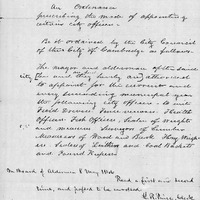 An Ordinance
prescribing the mode of appointing
certain city officers.
Be it ordained by the City Council
of the City of Cambridge as follows.
The mayor and aldermen of the said
city be and they hereby are authorized
to appoint for the current and
every succeeding municipal year
the following city officers: to wit
Field Drivers, Fence viewers,
Health Officers, Fish Officers, Sealer of Weights
and Measures, Surveyor of Lumber
Measurers of Wood and Bark, Hay Weighers
Sealers of Leather, and Coal Baskets
and Pound Keepers.
In Board of Aldermen 8 May 1846
Read a first and second
time, and passed to be enrolled.
Clerk